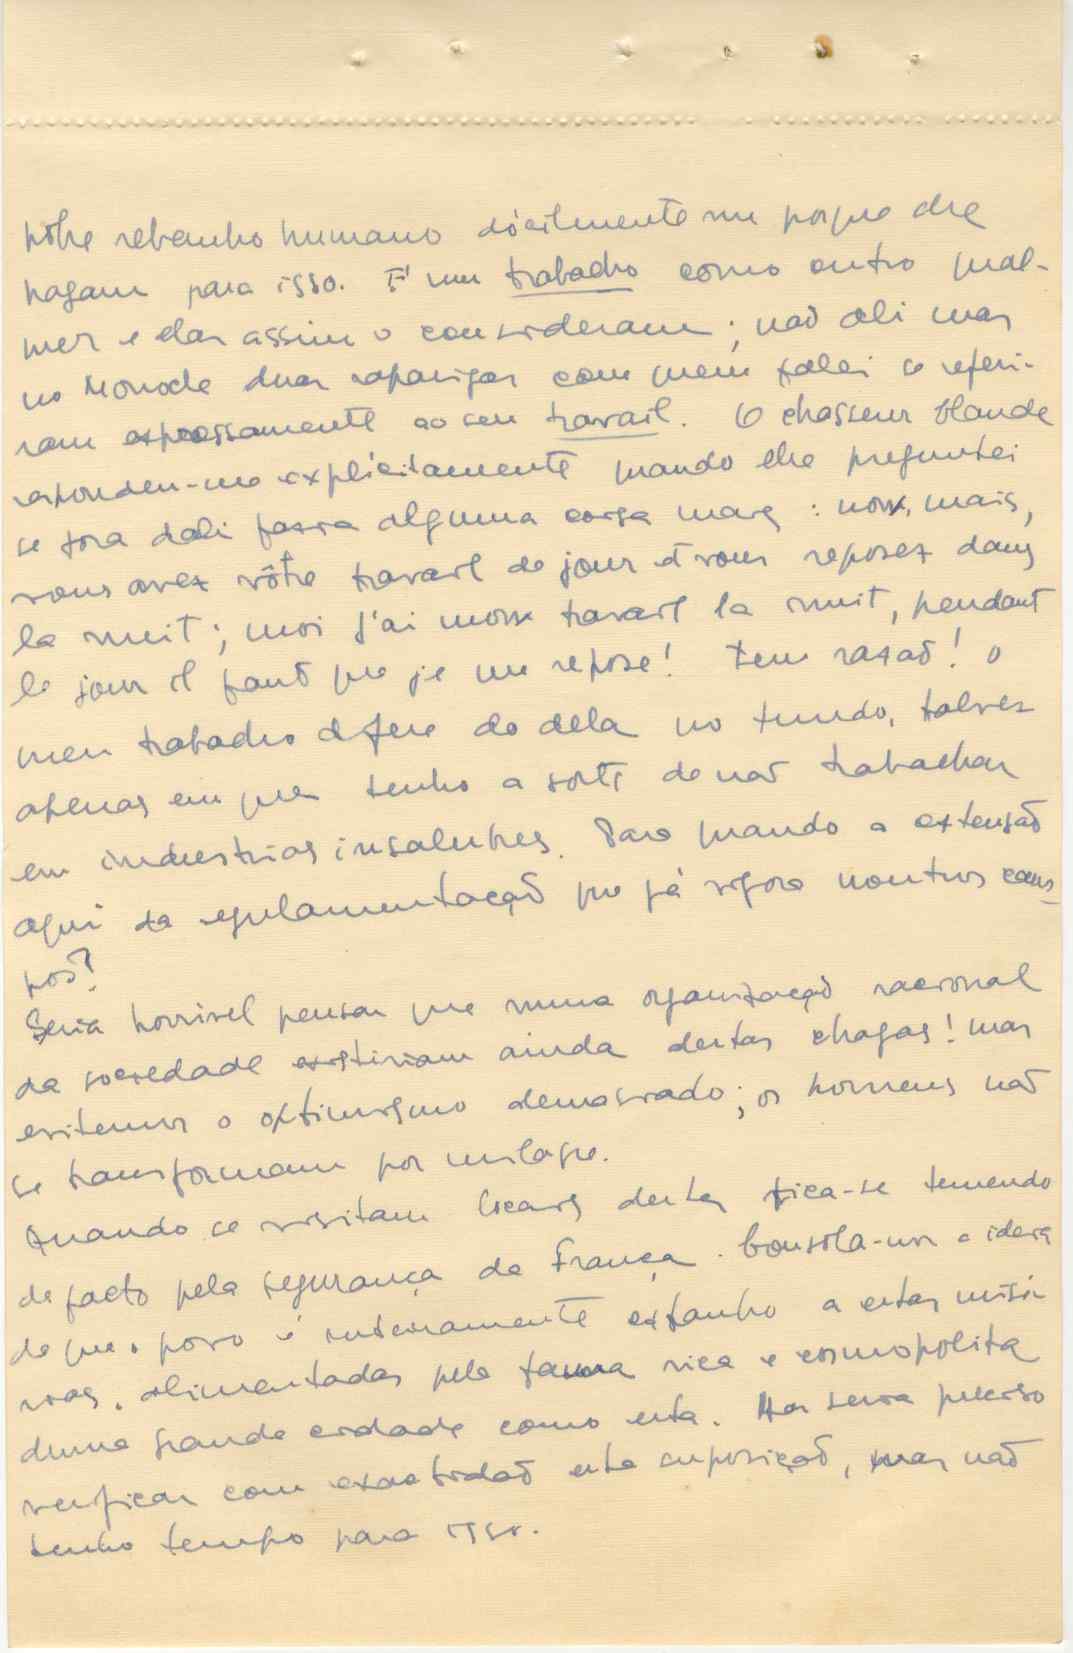 pobre rebanho humano docilmente porque lhe
pagam para isso. É um trabalho como outro qual-
quer e elas assim o consideram; não ali mas
no Monocle duas raparigas com quem falei se referi-
ram expressamente ao seu travail. O chasseur blonde
respondeu-me explicitamente quando lhe preguntei
se fora dali fazia alguma coisa mais: non, mais,
vous avez vôtre travail de jour et vous reposez dans
la nuit; moi j'ai mon travail la nuit, pendant
le jour il faut que je me repose! Tem razaõ! o
meu trabalho difere do dela no fundo, talvez
apenas em que tenho a sorte de naõ trabalhar
em industrias insalubres. Para quando a extensaõ
aqui da regulamentaçaõ que já vigora noutros cam-
pos?
Seria horrivel pensar que numa organizaçaõ racional
da sociedade existiriam ainda destas chagas! mas
evitemos o optimismo demasiado; os homens naõ
se transformam por milagre.
Quando se visitam locais destes fica-se temendo
de facto pela segurança da França. Consola-nos a ideia
de que o povo é inteiramente extranho a estas misé-
rias, alimentadas pela fauna rica e cosmopolita
duma grande cidade como esta. Mas seria preciso
verificar com exactidaõ esta suposiçaõ, mas naõ
tenho tempo para isso.